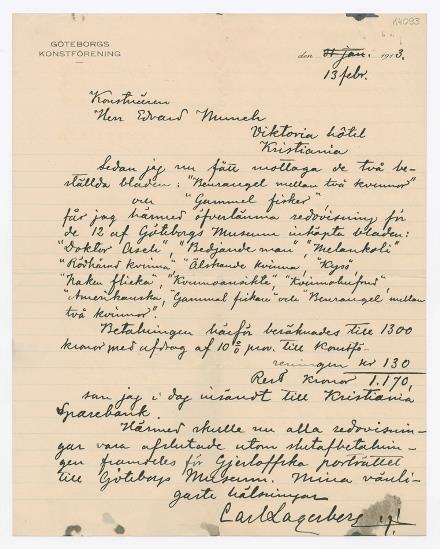 K4093
GÖTEBORGS
KONSTFÖRENING
den 31 jan. 1913.
13 febr.
Konstnären
Herr Edvard Munch
Viktoria hôtel
Kristiania
Sedan jag nu fått mottaga de två be-
ställda bladen: "Benrangel mellan två kvinnor"
och "Gammel fisker"
får jag härmed öfverlämna redovisning för
de 12 af Göteborgs Museum inköpta bladen:
"Doktor Asch" "Bedjande man", "Melankoli"
"Rödhårad kvinna", "Älskande kvinna", "Kyss"
"Naken flicka", "Kvinnoansikte", "Kvinnohufvud",
"Amerikanska, "Gammal fiskare" och "Benrangel mellan
två kvinnor".
Betalningen härför beräknades till 1300
kronor med afdrag af 10 % prov. till Konstfö-
reningen kr 130
Rest Kronor 1.170,
som jag i dag insändt till Kristiania
Sparebank.
Härmed skulle nu alla redovisnin-
gar vara afslutade utom slutafbetalnin-
gen framdeles för Gjerloffska porträttet
till Göteborgs Museum. Mina vänli-
gaste hälsningar
Carl Lagerberg